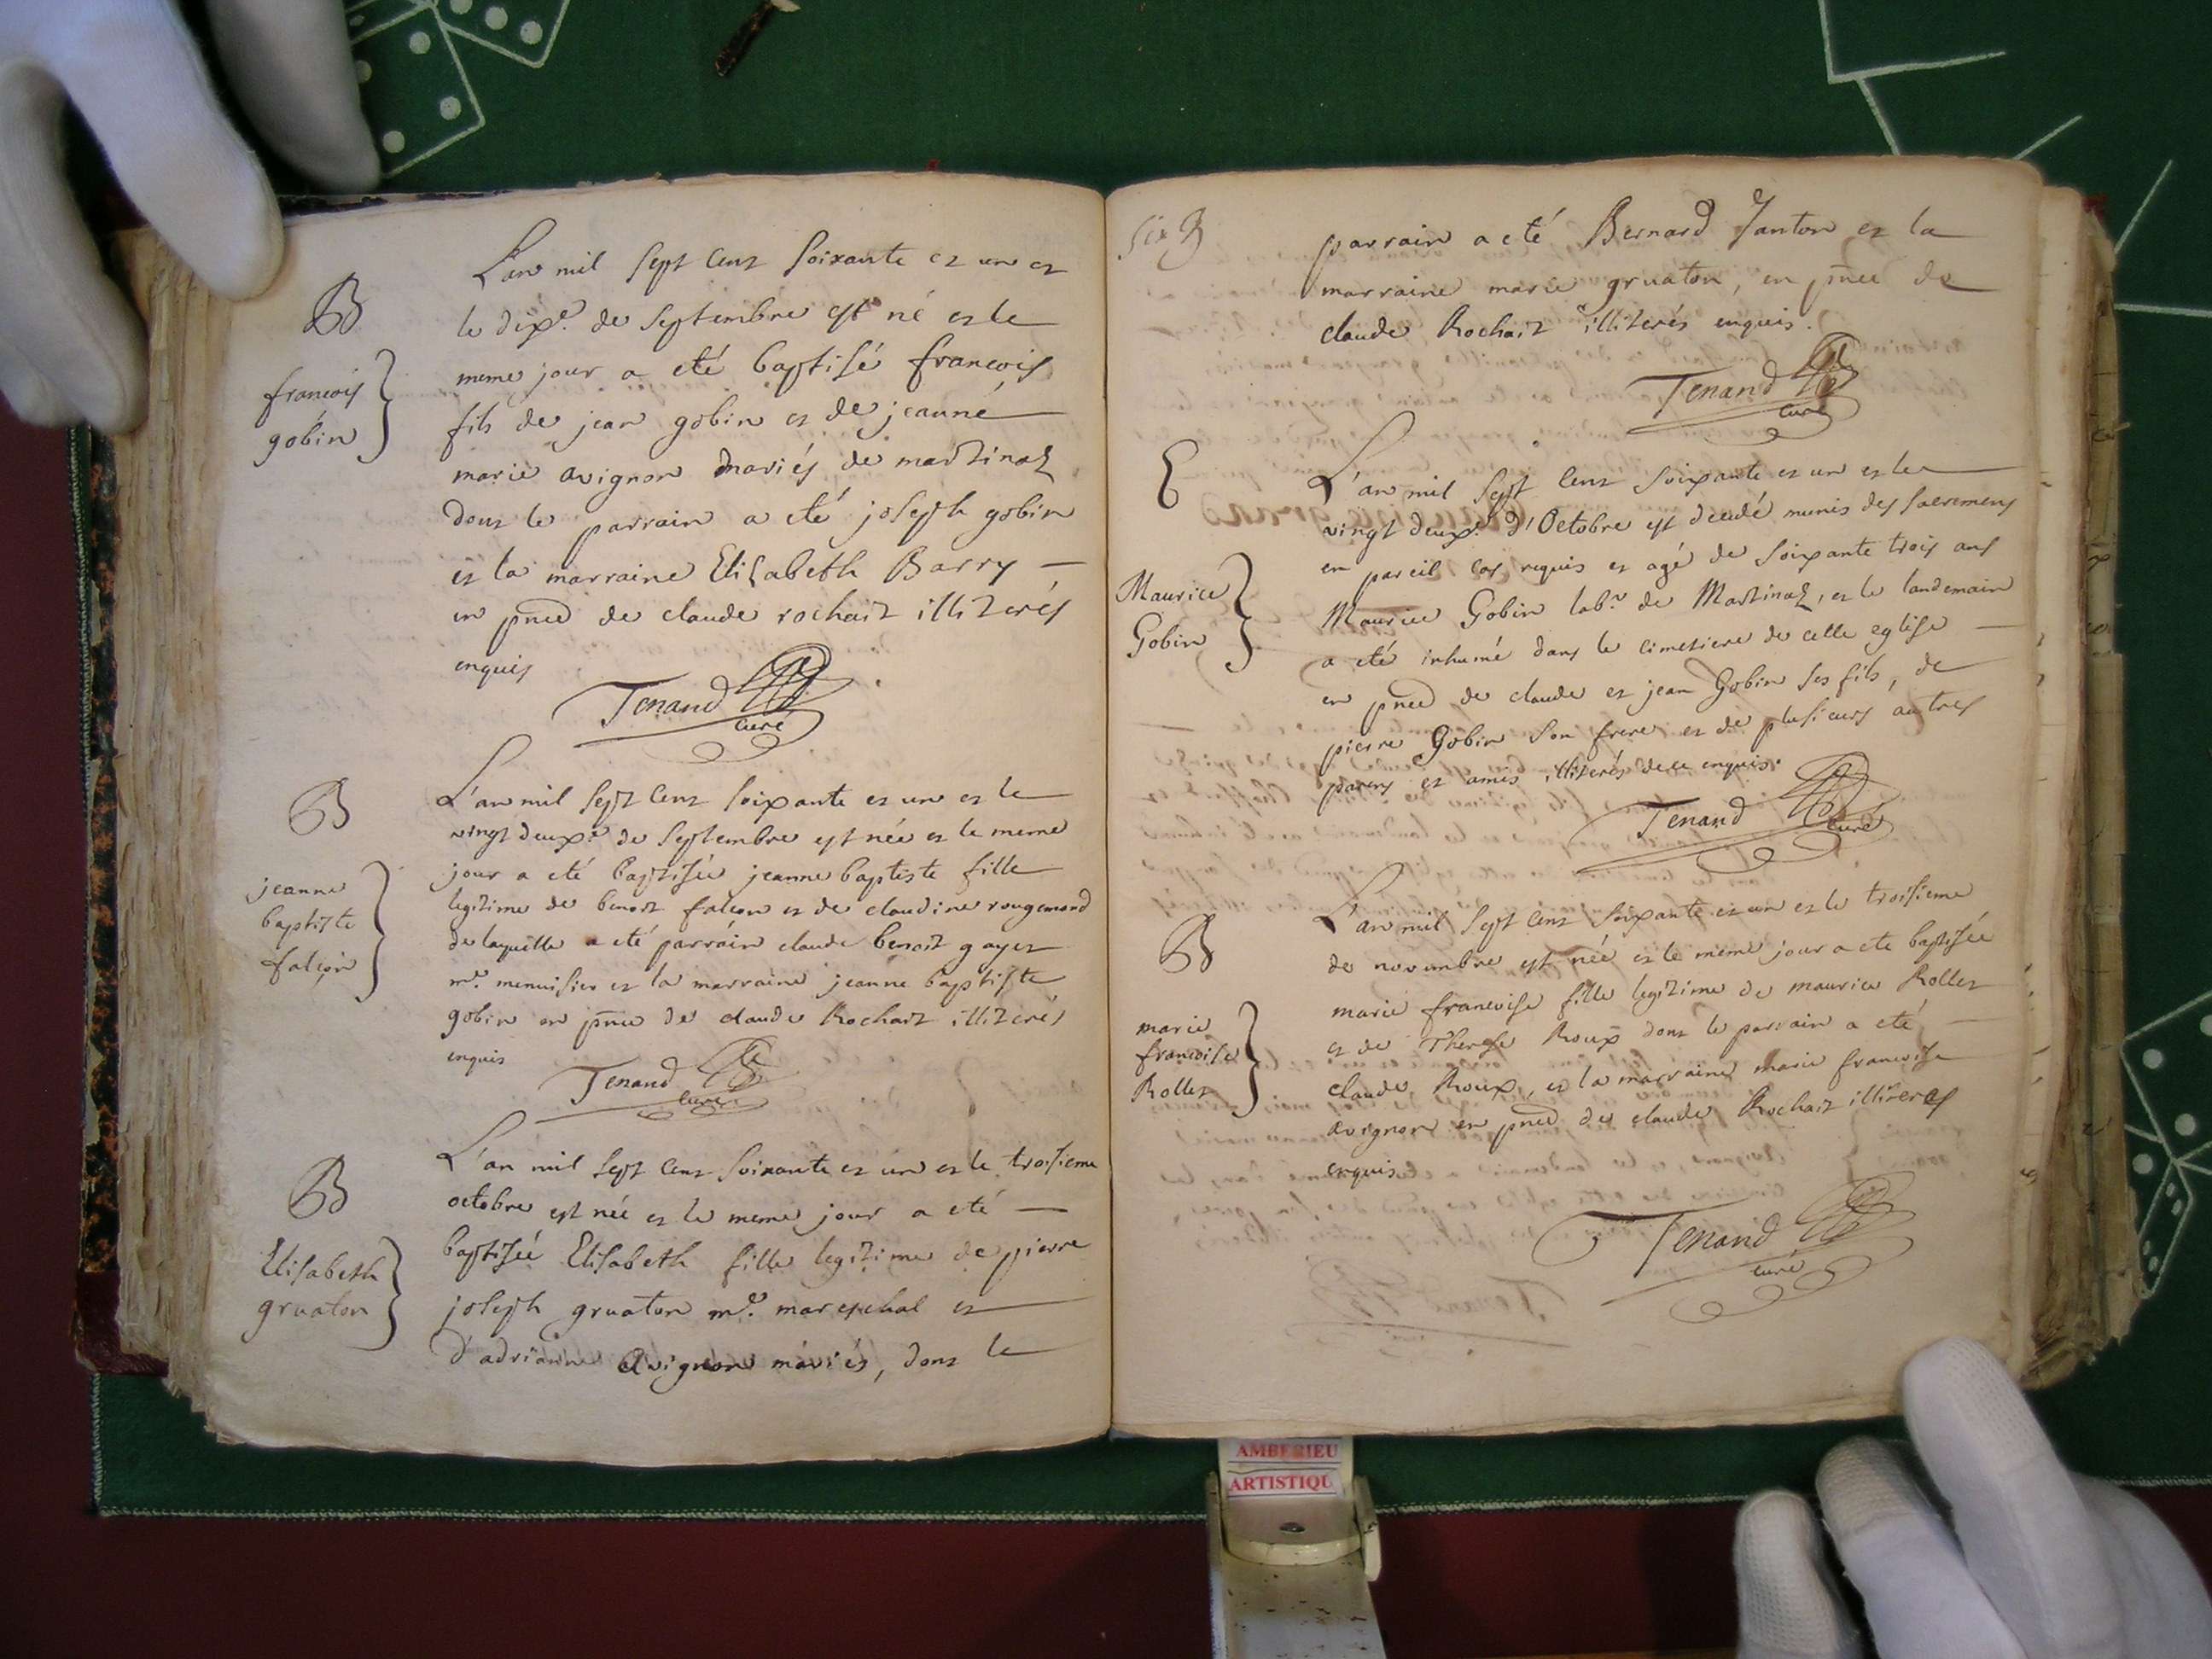 B
françois
gobin
L'an mil sept cent soixante et un et
le dixe. de septembre est né et le
meme jour a eté baptisé françois
fils de jean gobin et de jeanne
marie avignon mariés de martinaz
dont le parrain a eté joseph gobin
et la marraine Elizabeth Barry
en pnce de claude rochait illiterés
enquis
Tenand
curé
B
jeanne
baptiste
falcon
L'an mil sept cent soixante et un et le
vingt deuxe. de septembre est née et le meme
jour a eté baptisée jeanne baptiste fille
legitime de benoit falcon et de claudine rougemond
de laquelle a eté parrain claude benoit gayet
me. menuisier et la marraine jeanne baptiste
gobin en pnce de claude Rochait illiterés
enquis
Tenand
curé
B
Elisabeth
gruaton
L'an mil sept cent soixante et un et le troisieme
octobre est née et le meme jour a eté
baptisée Elisabeth fille legitime de pierre
joseph gruaton me. marechal et
d'adrianne Avignon mariés, dont le
six B
parrain a eté Bernard Janton et la
marraine marie gruaton, en pnce de
claude Rochait illiterés enquis.
Tenand
curé
E
Maurice
Gobin
L'an mil sept cent soixante et un et le
vingt deuxe. d'Octobre est decedé munis des sacremens
en pareil cas requis et agé de soixante trois ans
Maurice Gobin labr. de Martinaz, et le landemain
a eté inhumé dans le cimetiere de celle eglise
en pnce de claude et jean Gobin ses fils, de
pierre Gobin son frere et de plusieurs autres
parens et amis illiterés de ce enquis.
Tenand
curé
B
marie
francoise
Rollet
L'an mil sept cent soixante et un et le troisieme
de novembre est née et le meme jour a ete baptisée
marie francoise fille legitime de maurice Rollet
et de Therese Roux dont le parrain a eté
claude Roux, et la marraine marie francoise
avignon en pnce de claude Rochait illiteres
enquis
Tenand
curé
AMBERIEU
ARTISTIQU